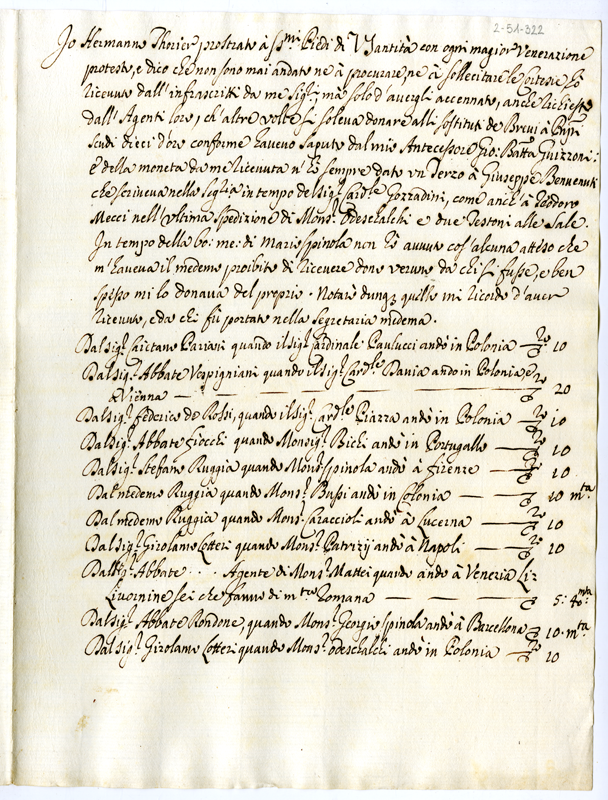 2-51-322
Io Hermanno Thorier prostrato à SS.mi Piedi di V. Santità con ogni magior Venerazione
protesto, e dico che non sono mai andato ne à procurare, ne à sollecitare le cortesie hò
ricevuto dall' infrascritti da me sig.ri, mà solo d'avergli accennato, anche richiesto
dall' Agenti loro, ch'altre volte si soleva donare alli sostituti de Brevi à
scudi dieci d'oro conforme havevo saputo dal mio Antecessore Gio: Batta Guizzoni:
E della moneta da me ricevuta n' hò sempre dato un Terzo à Giuseppe Benvenuti
che scriveva nella in tempo del sig.r Card.le Gozzadini, come anch' à Teodoro
Mecci nell' ultima spedizione di Mons.r Odescalchi e due Testoni alle Sale.
In tempo della bo: me: di Mario spinola non hò avuto cos' alcuna atteso che
m'haveva il medemo proibito di ricevere dono veruno da chi si fusse, e ben
spesso mi lo donava del proprio. Notarò dunq. quello mi ricordo d'aver
ricevuto, e da chi fù portato nella Segretaria medema.
Dal sig.r Gaietano Pariani quando il sig.r Cardinale Paulucci andò in Polonia — 10
Dal sig.r Abbate Vespigniani quando il sig.r Card.le Davia andò in Polonia, e
à Vienna — 20
Dal sig.r Federico de Rossi, quando il sig.r Card.le Piazza andò in Polonia — 10
Dal sig.r Abbate Fiocchi quando Monsig.r Bichi andò in Portugallo — 10
Dal sig.r Stefano Ruggia quando Mons.r spinola andò à Firenze — 10
Dal medemo Ruggia quando Mons.r Bussi andò in Colonia — 10 m.ta
Dal medemo Ruggia quando Mons.r Caraccioli andò à Lucerna — 10
Dal sig.r Girolamo Lotteri quando Mons.r Patrizij andò à Napoli — 10
Dall' Abbate . . . Agente di Mons.r Mattei quando andò à Venezia
Livornine sei che fanno di m.ta Romana — 5: 40 m.ta
Dal sig.r Abbate Rondone, quando Mons.r Georgio spinola andò à Barcellona 10. m.ta
Dal sig.r Girolamo Lotteri quando Mons.r Odescalchi andò in Polonia — 10